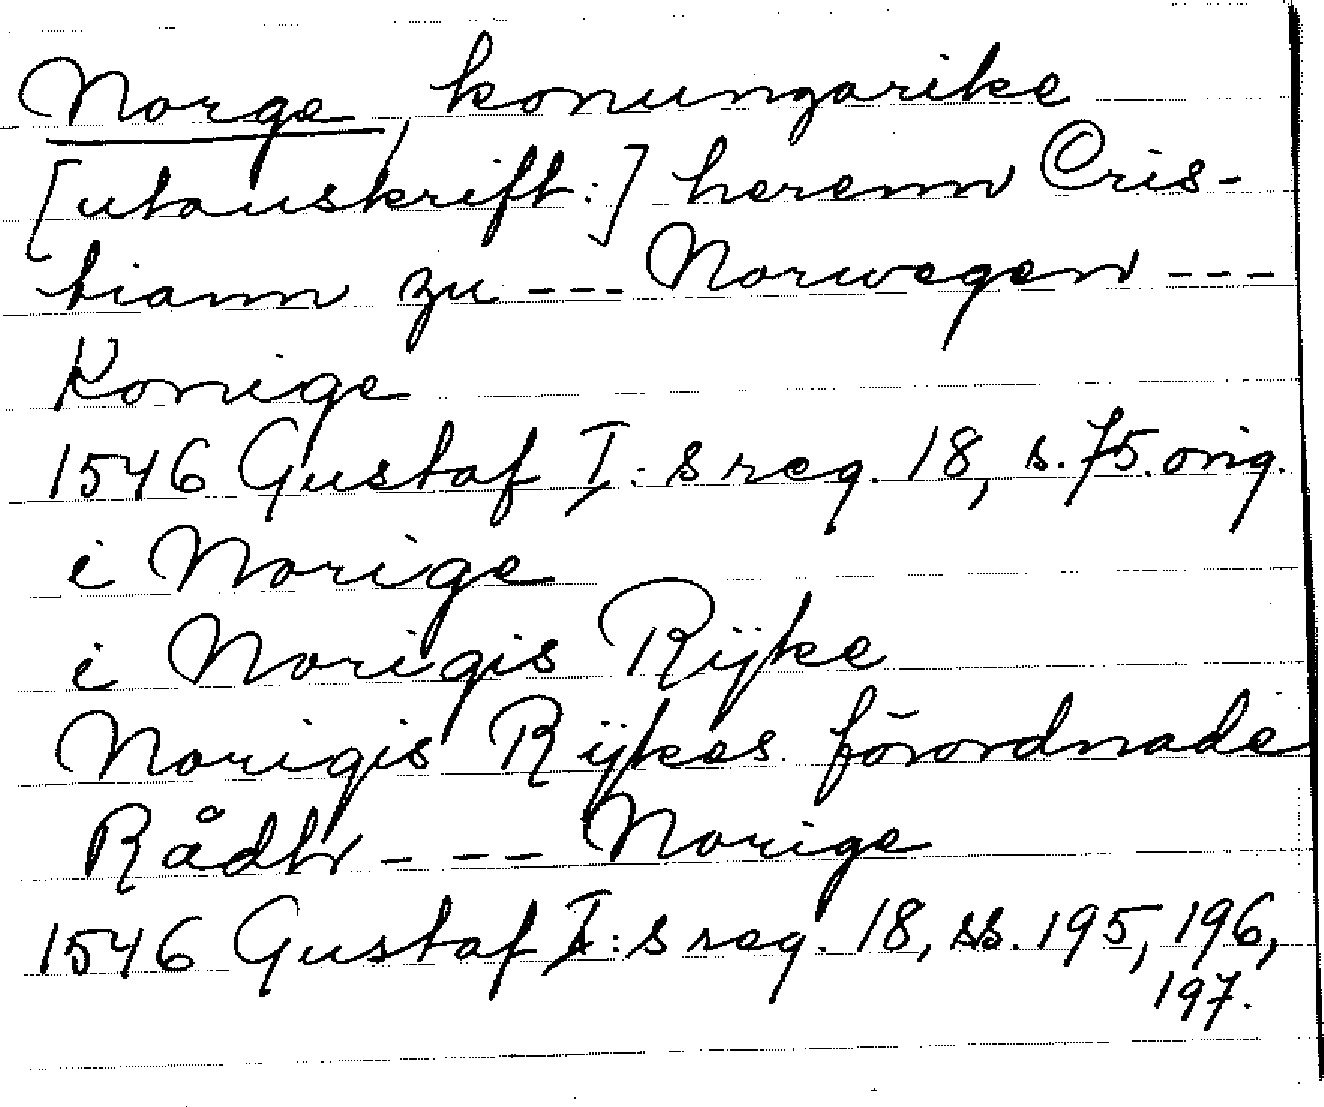 Norge, konungarike
[utanskrift:] herenn Cris-
tiann zu --- Norwegen ---
Konige
1546 Gustaf I:s reg. 18, s. 75. orig.
i Norige
i Norigis Rijke
Norigis Rijkes förordnade
Rådh --- Norige
1546 Gustaf I:s reg. 18, ss. 195, 196,
197.